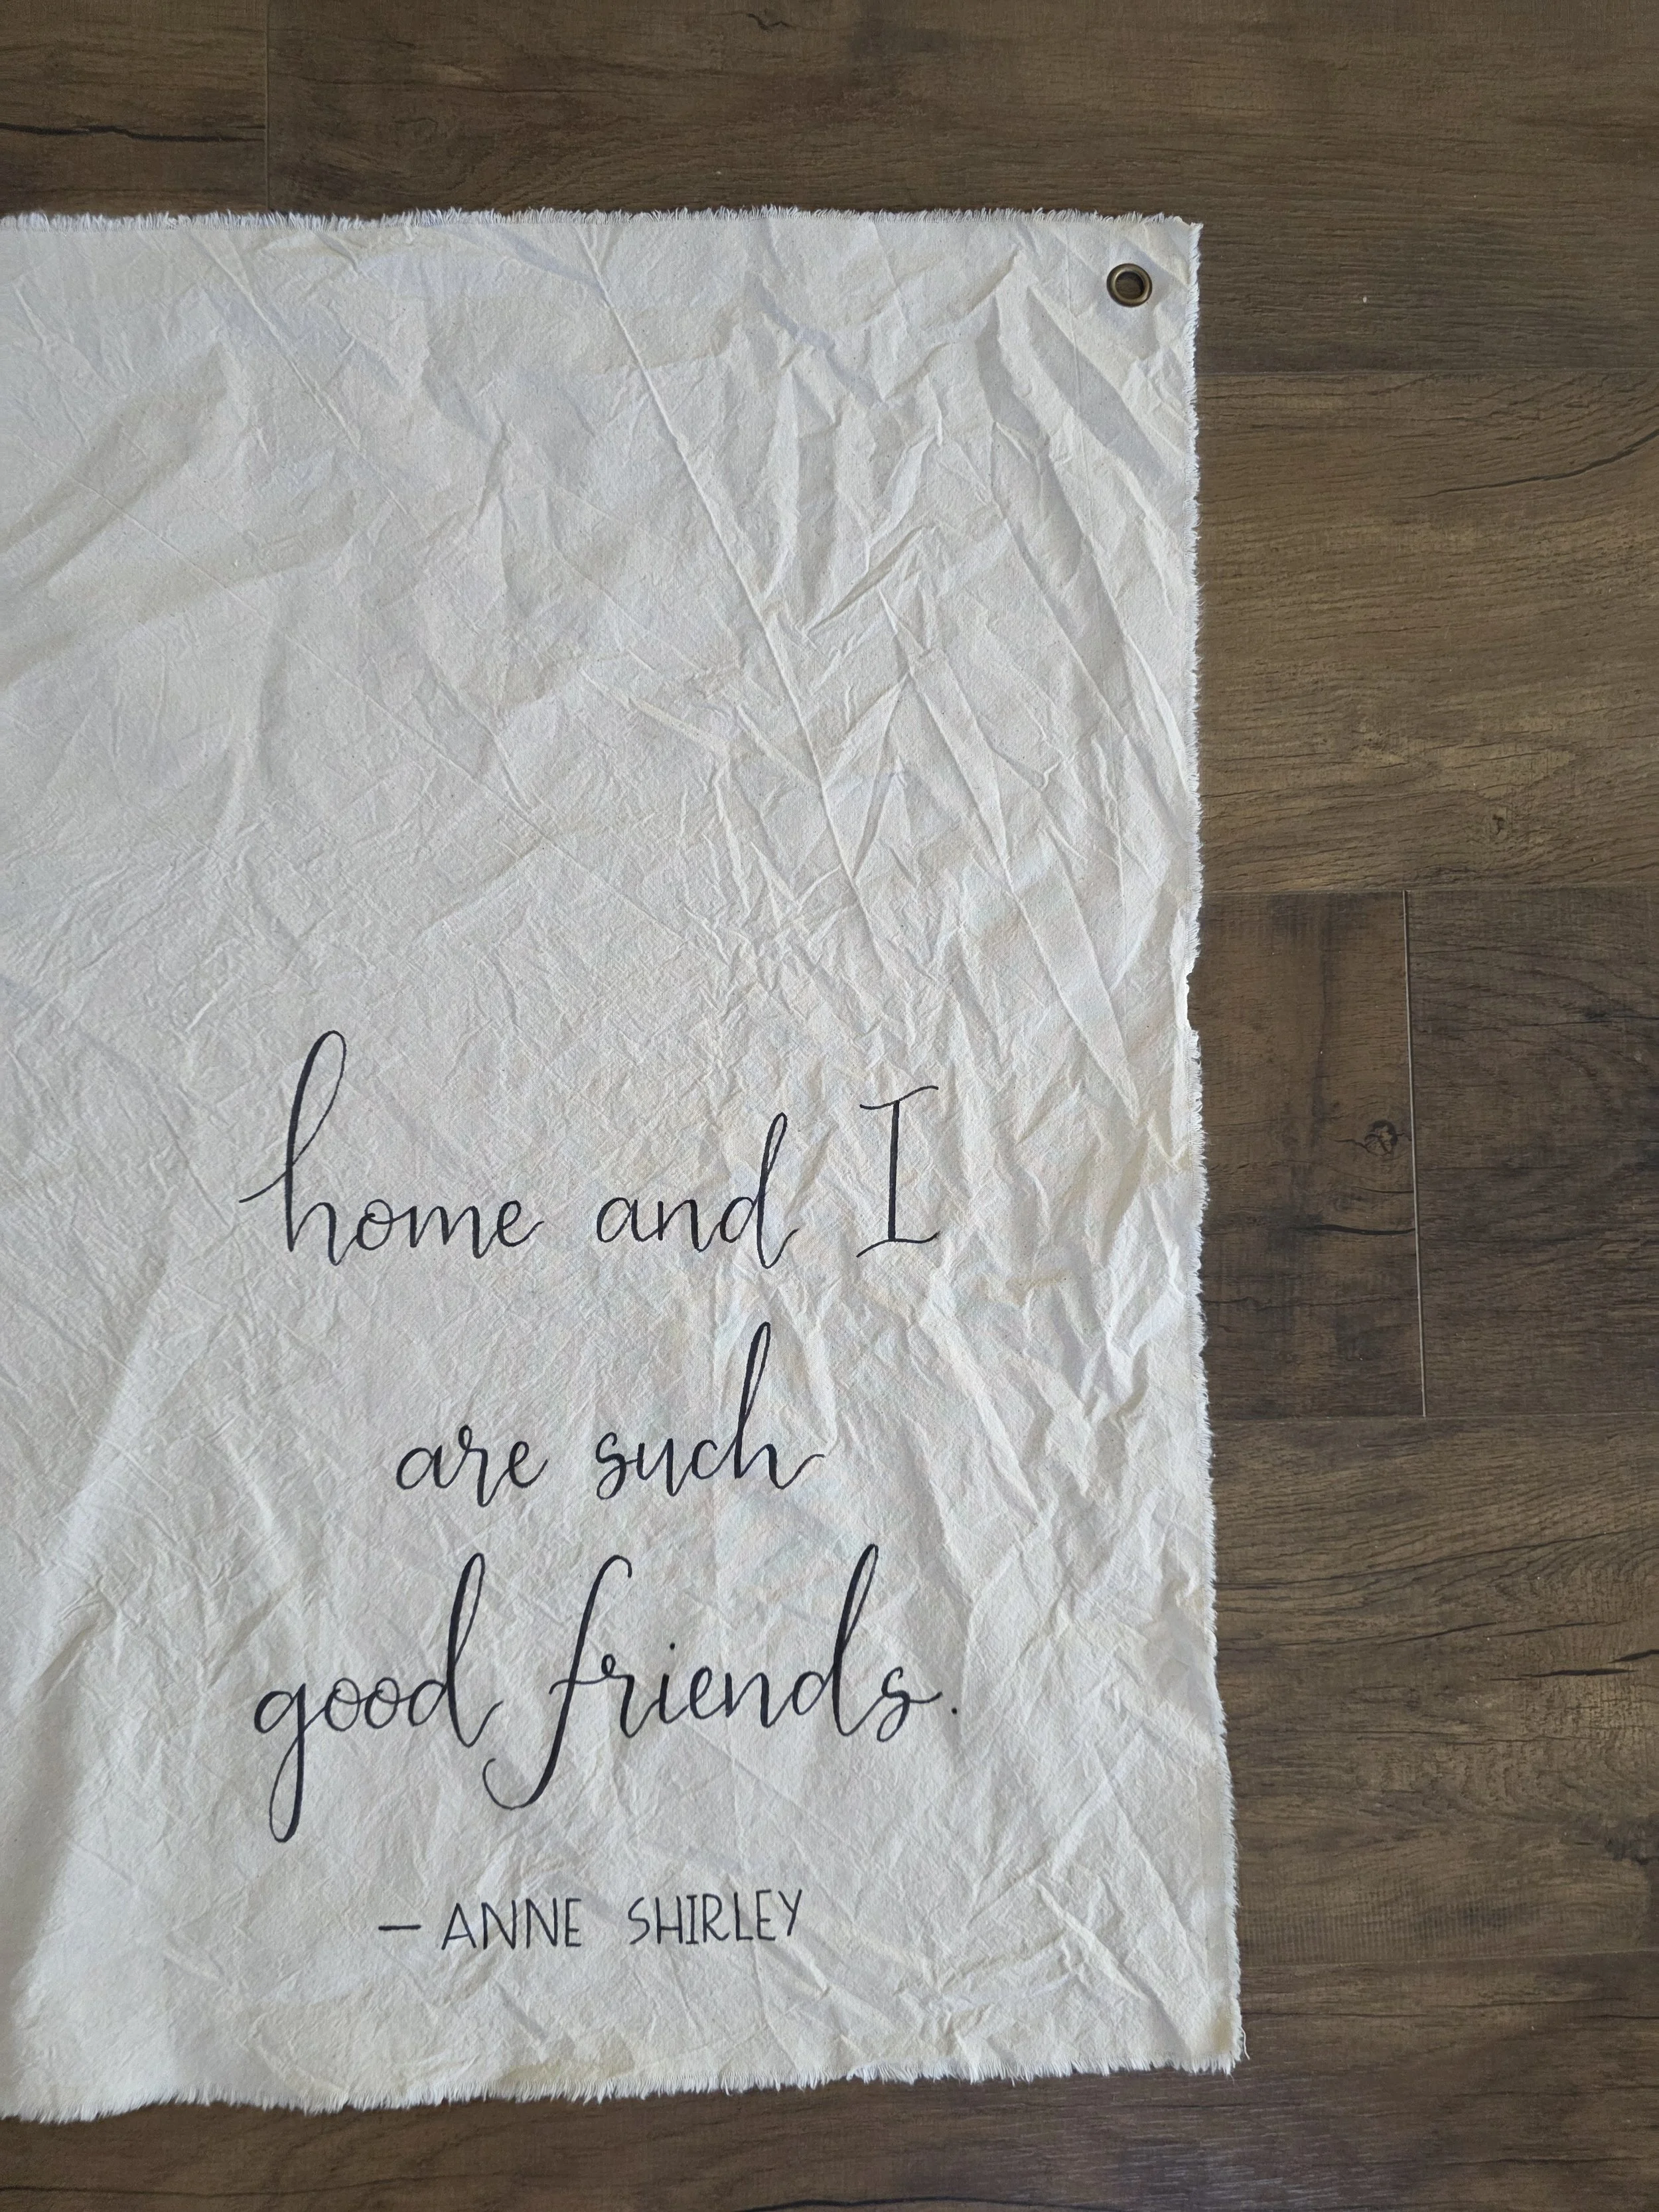 home and I
are such
good friends.
— ANNE SHIRLEY